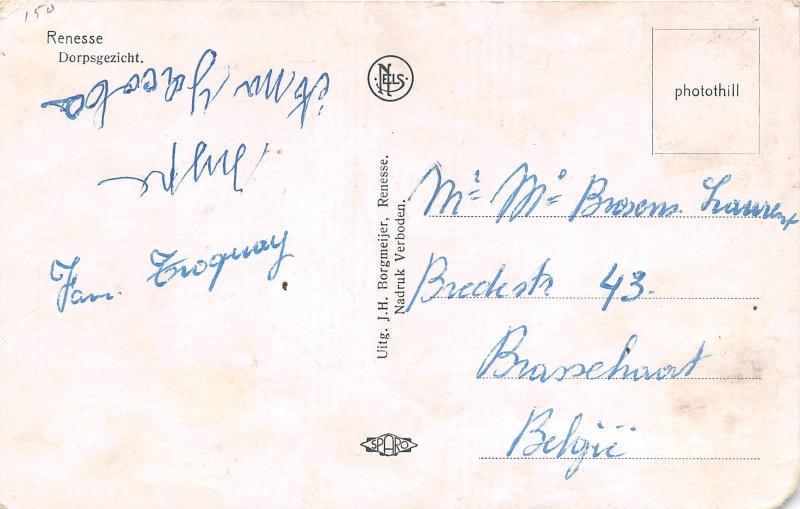 150
Renesse
Dorpsgezicht.
Fam. Troquay
NELS
Uitg. J.H. Borgmeijer, Renesse.
Nadruk Verboden.
SPARO
photothill
Mr Me Brosens Laurent
Bredestr 43.
Brasschaat
België